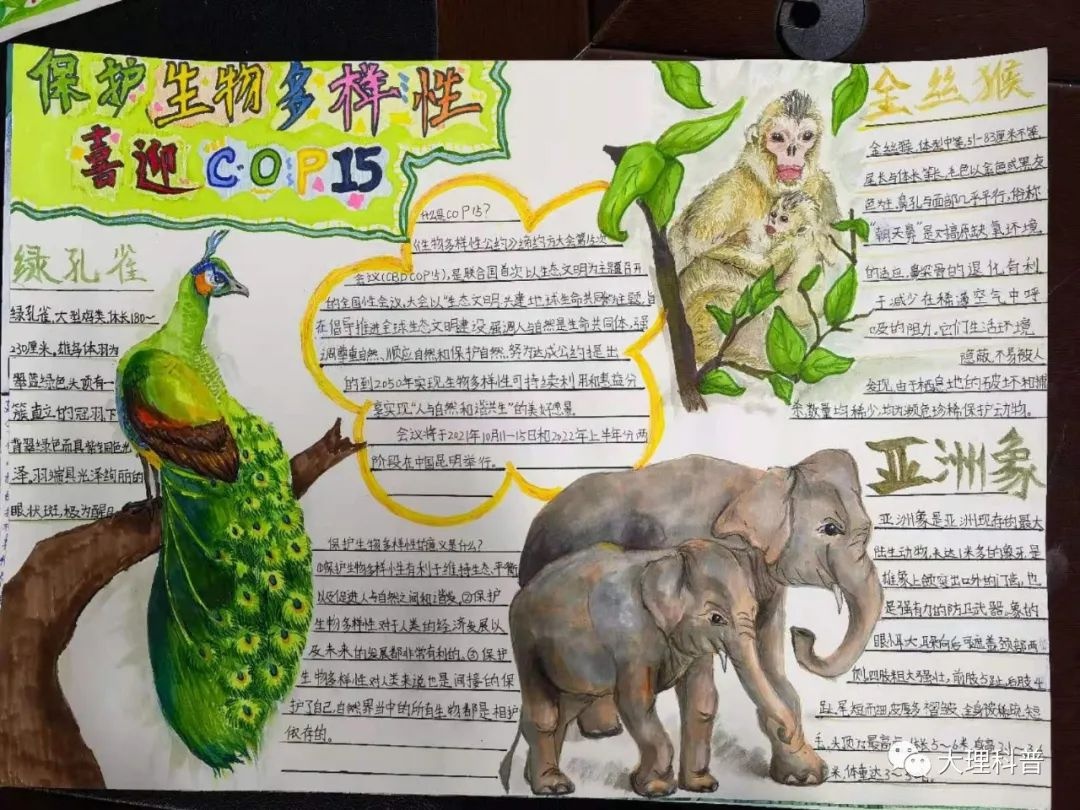 保护生物多样性
喜迎COP15
绿孔雀
绿孔雀,大型鸡类,体长180~
230厘米。雄鸟体羽为
翠蓝绿色,头顶有一
簇直立的冠羽,下
背翠绿色而具紫铜色光
泽。羽端具光泽绚丽的
眼状斑,极为醒目。
什么是COP15?
《生物多样性公约》缔约方大会第15次
会议(CBDCOP15),是联合国首次以生态文明为主题召开
的全国性会议,大会以"生态文明:共建地球生命共同体"为主题,旨
在倡导推进全球生态文明建设,强调人与自然是生命共同体,强
调尊重自然、顺应自然和保护自然,努力达成公约提出
的到2050年实现生物多样性可持续利用和惠益分
享实现"人与自然和谐共生"的美好愿景。
会议将于2021年10月11-15日和2022年上半年分两
阶段在中国昆明举行。
保护生物多样性的意义是什么?
①保护生物多样小性有利于维持生态平衡
以及促进人与自然之间和谐发。②保护
生物多样性对于人类的经济发展以
及未来的发展都非常有利的。③保护
生物多样性对人类来说也是间接的保
护了自己,自然界当中的所有生物都是相护
依存的。
金丝猴
金丝猴,体型中等,51-83厘米不等,
尾长与体长等长,毛色以金色或黑灰
色为主,鼻孔与面部几乎平行,俗称
"朝天鼻"是对高原缺氧环境
的适应,鼻梁骨的退化有利
于减少在稀薄空气中呼
吸的阻力。它们生活环境
隐蔽,不易被人
发现,由于栖息地的破坏和捕
杀,数量均稀少,均为濒危珍稀保护动物。
亚洲象
亚洲象是亚洲现存的最大
陆生动物,长达1米多的象牙是
雄象上颌突出口外的门齿,也
是强有力的防卫武器,象的
眼小耳大,耳朵向后可遮盖颈部两
侧。四肢粗大强壮,前肢5趾,后肢4
趾,尾短而细,皮厚多褶皱,全身被稀疏短
毛,头顶为最高点,体长5~6米,身高
米,体重达3~
大理科普